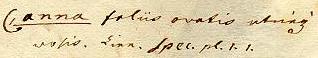 Canna foliis ovatis utrinq
vosis. Linn. Spec. pl. 1. 1.